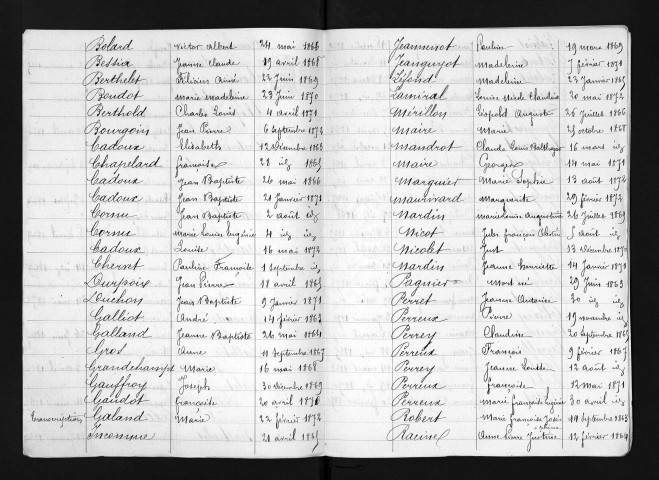 Bolard Victor Albert 24 mai 1866
Bessia Jeanne Claude 19 avril 1868
Berthelet Félicien Aimé 22 Juin 1869
Boudot Marie Madeleine 23 Juin 1870
Berthold Charles Louis 4 avril 1871
Bourgoin Jean Pierre 6 Septembre 1872
Cadoux Elisabeth 12 Décembre 1863
Chapelard françoise 28 id 1865
Cadoux Jean Baptiste 26 mai 1866
Cadoux Jean Baptiste 21 Janvier 1871
Cornu Jean Baptiste 2 août id
Cornu Marie Louise Eugénie 4 id id
Cadoux Louise 16 mai 1872
Chernet Pauline Françoise 1 Septembre id
Jean Pierre 18 avril 1865
Luchon Jean Baptiste 9 Janvier 1871
Galliot André 14 février 1863
Galland Jeanne Baptiste 26 mai 1864
Gros Anne 11 Septembre 1867
Grandchamp Marie 16 mai 1868
Gauffroy Joseph 30 Décembre 1869
Gaudot françoise 20 avril 1870
Transcription Galand Marie 22 février 1872
Incomme 21 avril 1865
Jeannenot Pauline 19 mars 1869
Jeanguyot Madeleine 7 février 1871
Madeleine 23 Janvier 1865
Lamiral Louise Claudia 20 mai 1872
Mérillon Léopold Auguste 26 Juillet 1866
Maire Marie 23 octobre 1868
Mandrot Claude Louis Balthazar 16 mars id
Maire Georges 14 mai 1871
Marquier Marie Sophie 13 août 1872
Marguerite 29 février 1872
Mardin Marie Louise Augustine 26 Juillet 1869
Nicot Jules françois 5 août id
Nicolet Just 13 Décembre 1870
Nardin Jeanne Henriette 14 Janvier 1871
Pagnier Mort né 29 Juin 1863
Perret Jeanne Antoine 30 id id
Perreux Pierre 19 novembre id
Perrey Claudine 20 Septembre 1865
Perreux François 9 février 1867
Perrey Jeanne Louise 12 août id
Perreux françoise 12 mai 1871
Perreux Marie françoise Eugénie 30 avril id
Robert Marie françoise 19 Septembre 1863
Racine Anne Pierre Justine 12 février 1864